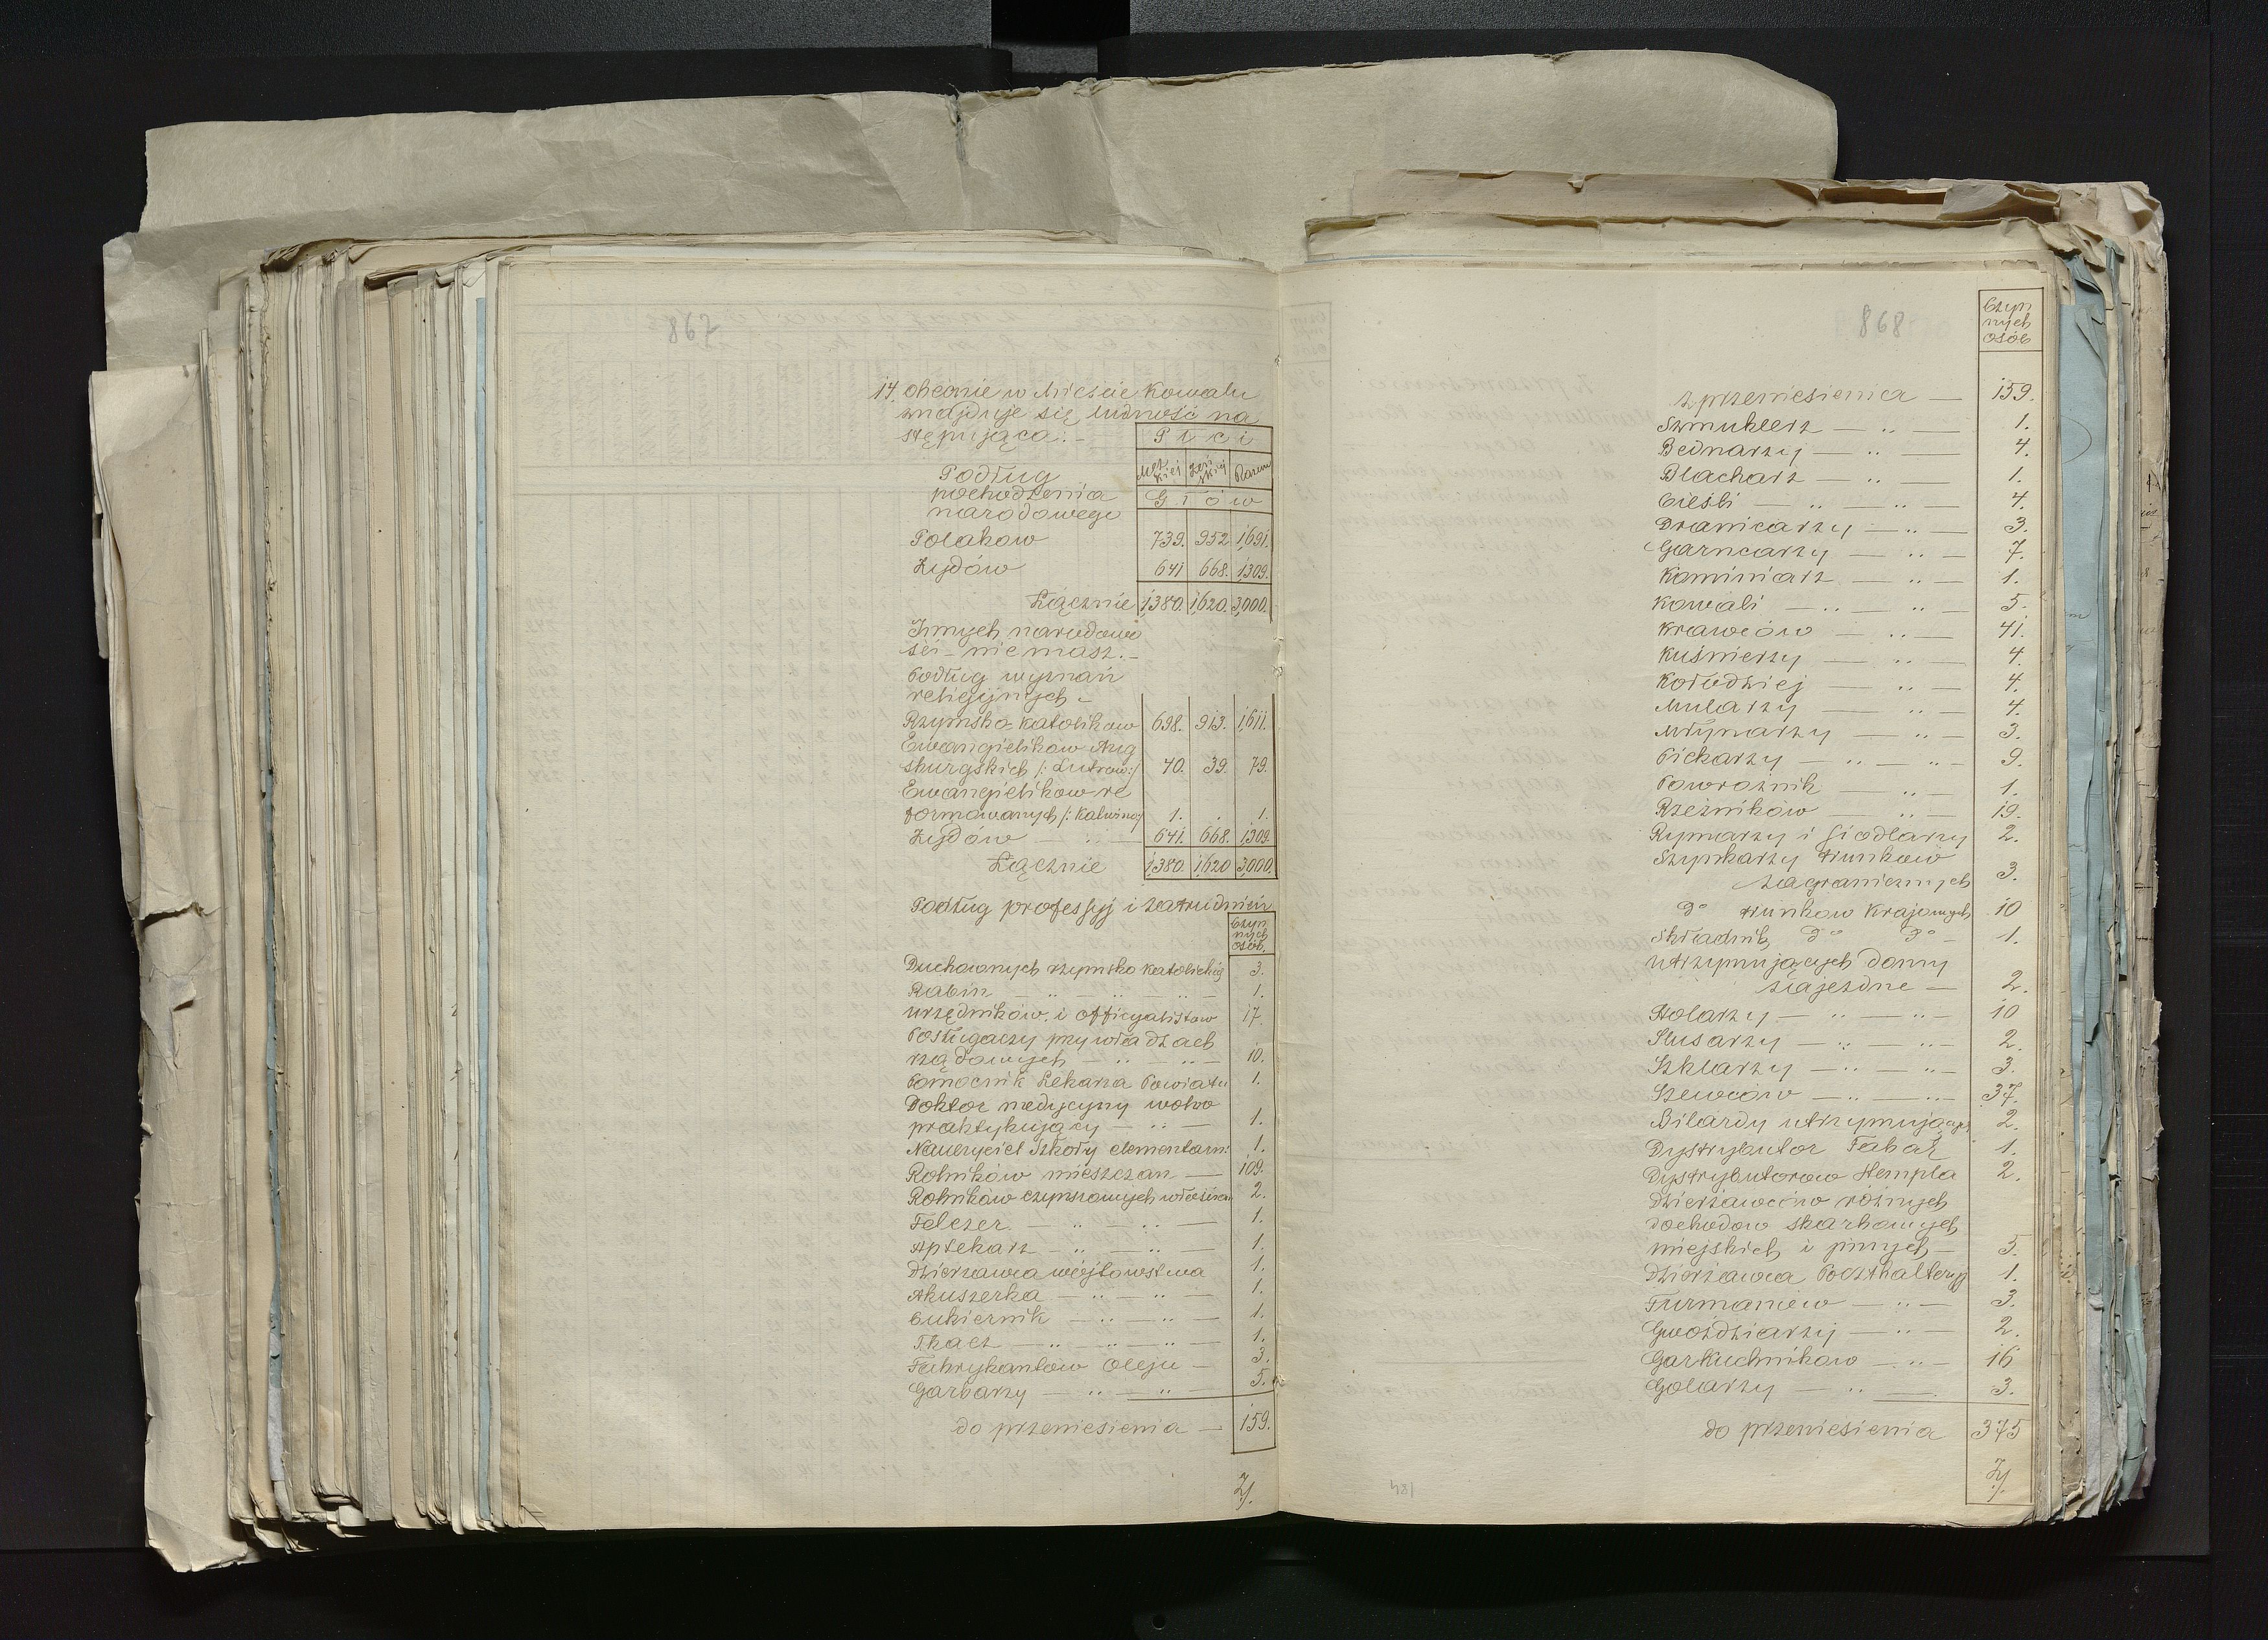 867
14. obecnie w Mieście Kowalu
znajduje się ludność na
stępująca:-
Płci
Męz kiej Żeń skiej Razem
Głów
Podług
pochodzenia
narodowego
Polakow 739. 952 1,691.
Żydów 641 668. 1,309.
Łącznie 1,380. 1,620. 3,000.
Innych narodowo
ści - nie masz.-
Podług wyznań
religijnych -
Rzymsko katolikow 698. 913. 1,611.
Ewangielikow Aug
sburgskich /: Lutrow:/ 40. 39. 79.
Ewangielikow re
formowanych /: Kalwinow 1. . 1.
Żydów — " — 641. 668. 1,309.
Łącznie 1,380. 1,620 3,000.
Podług professyj i zatrudnień
Czyn
nych
osób.
Duchownych rzymsko katolickich 3.
Rabin — " — " — " — 1.
urzędników i officyalistow 17.
Posługaczy przy władzach
rządowych — " — " — 10.
Pomocnik Lekarza Powiatu 1.
Doktor medycyny wolno
praktykujący — " — 1.
Nauczyciel Szkoły elementarn: 1.
Rolników mieszczan — 109.
Rolnikow czynszowych włościan 2.
Felczer — " — " — 1.
Aptekarz — " — " — 1.
Dzierzawca wójtowstwa 1.
Akuszerka — " — " — 1.
Cukiernik — " — " — 1.
Tkacz — " — " — " — 1.
Fabrykantow Oleju — 3.
Garbarzy — " — " — 5.
do przeniesienia — 159.
868
Czyn
nych
osób
z przeniesienia — 159.
Szmuklerz — " — 1.
Bednarzy — " — 4.
Blacharz — " — 1.
Cieśli — " — " — 4.
Dranicarzy — " — 3.
Garncarzy — " — 7.
Kominiarz — " — 1.
Kowali — " — " — 5.
Krawców — " — 41.
Kuśnierzy — " — 4.
Kołodziej — " — 4.
Mularzy — " — 4.
Młynarzy — " — 3.
Piekarzy — " — " — 9.
Powroźnik — " — 1.
Rzeźników — " — 19.
Rymarzy i Siodlarzy 2.
Szynkarzy trunków
zagranicznych 3.
do trunkow krajowych 10
Składnik do do - 1.
utrzymujących domy
zajezdne — 2.
Stolarzy — " — " — 10
Slusarzy — " — " — 2.
Szklarzy — " — " — 3.
Szewców — " — " — 37.
Bilardy utrzymujących 2.
Dystrybutor Tabak 1.
Dystrybutorow Stempla 2.
Dzierżawców różnych
dochodow skarbowych
miejskich i innych — 5.
Dzierżawca Poczthalteryj 1.
Furmanów — " — 3.
Gwozdziarzy — " — 2.
Garkuchnikow — " — 16
Golarzy — " — 3.
do przeniesienia 375
184